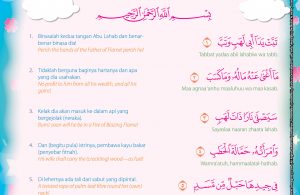 بِسْمِ اللَّهِ الرَّحْمَٰنِ الرَّحِيمِ
1. Binasalah kedua tangan Abu Lahab dan benar-
benar binasa dia!
Perish the hands of the Father of Flame! perish he!
تَبَّتْ يَدَا أَبِي لَهَبٍ وَتَبَّ
Tabbat yadaa abii lahabiw wa tabb.
2. Tidaklah berguna baginya hartanya dan apa
yang dia usahakan.
No profit to him from all his wealth, and all his
gains!
مَا أَغْنَىٰ عَنْهُ مَالُهُ وَمَا كَسَبَ
Maa aghnaa 'anhu maaluhuu wa maa kasab.
3. Kelak dia akan masuk ke dalam api yang
bergejolak (neraka).
Burnt soon will he be in a Fire of Blazing Flame!
سَيَصْلَىٰ نَارًا ذَاتَ لَهَبٍ
Sayaslaa naaran dhaata lahab.
4. Dan (begitu pula) istrinya, pembawa kayu bakar
(penyebar fitnah).
His wife shall carry the (crackling) wood—as fuel!
وَامْرَأَتُهُ حَمَّالَةَ الْحَطَبِ
Wamra'atuh, hammaalatal-hathab.
5. Di lehernya ada tali dari sabut yang dipintal.
A twisted rope of palm-leaf fibre round her (own)
neck!
فِي جِيدِهَا حَبْلٌ مِّن مَّسَدٍ